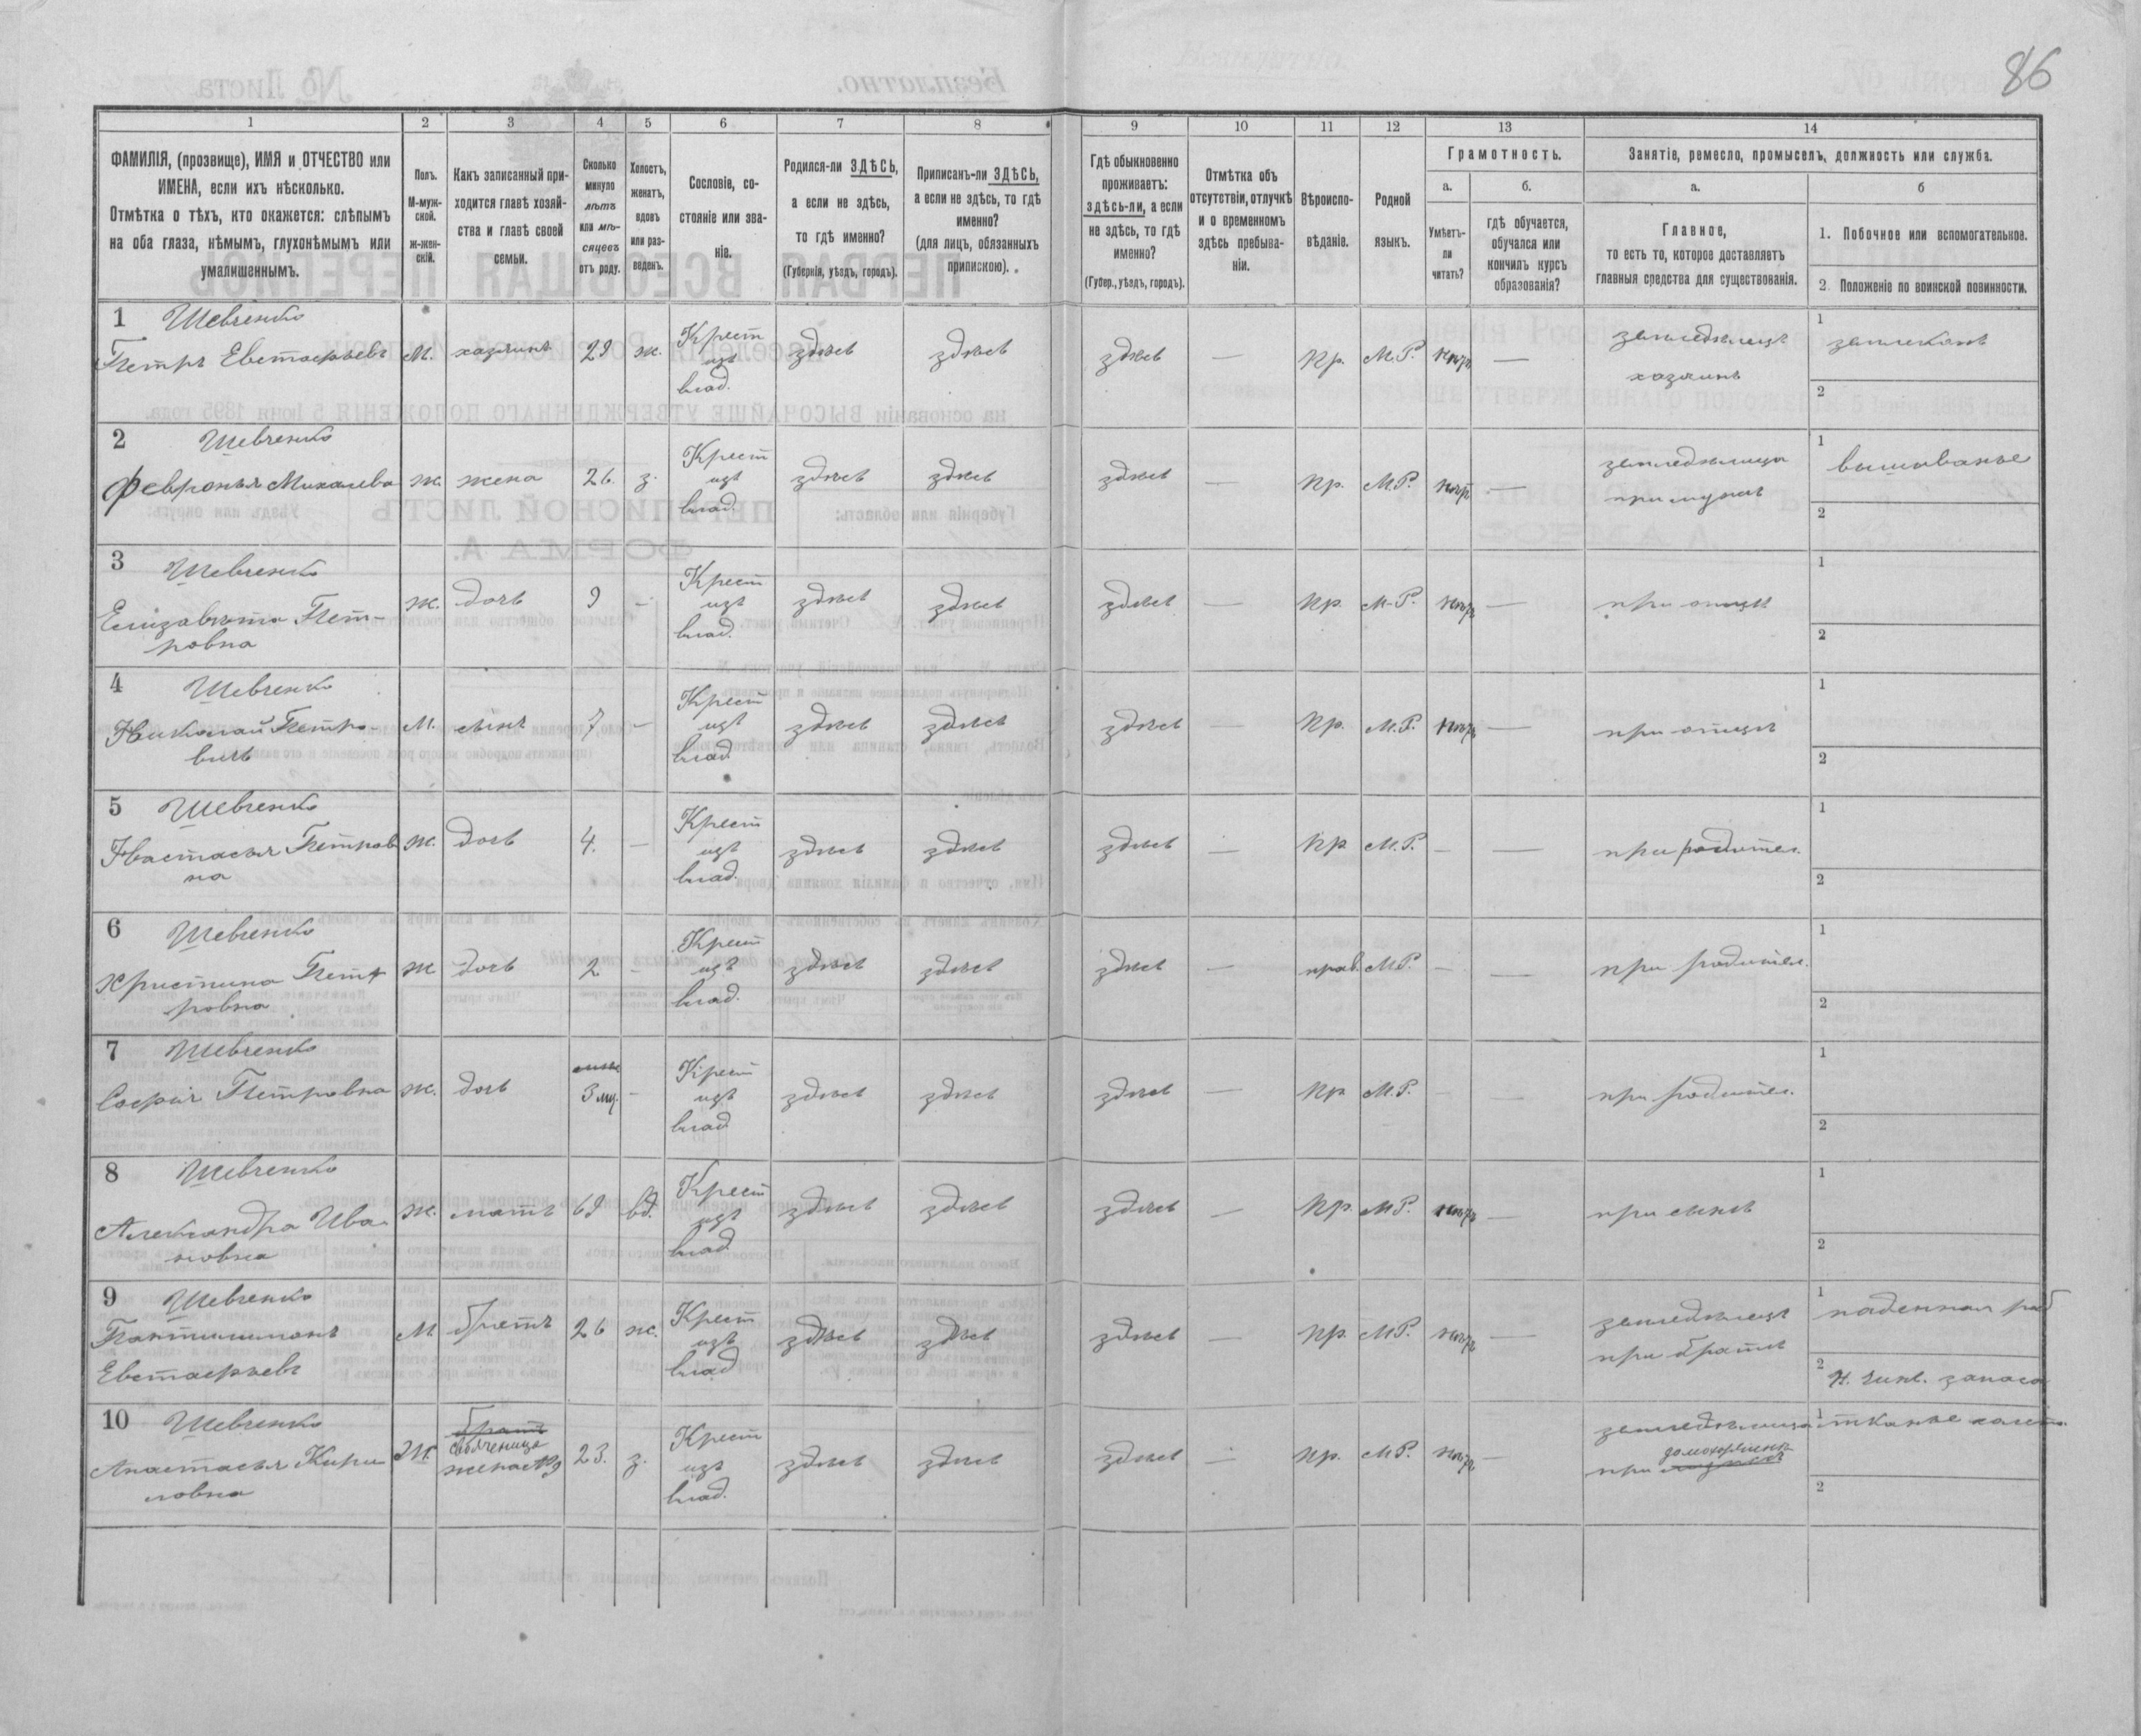 86
1 2 3 4 5 6 7 8 9 10 11 12 13 14
ФАМИЛІЯ, (прозвище), ИМЯ и ОТЧЕСТВО или
ИМЕНА, если ихъ нѣсколько.
Отмѣтка о тѣхъ, кто окажется: слѣпымъ
на оба глаза, нѣмымъ, глухонѣмымъ или
умалишеннымъ.
Полъ.
М-муж-
ской.
Ж-жен-
скій.
Какъ записанный при-
ходится главѣ хозяй-
ства и главѣ своей
семьи.
Сколько
минуло
лѣтъ
или мѣ-
сяцевъ
отъ роду.
Холостъ,
женатъ,
вдовъ
или раз-
веденъ.
Сословіе, со-
стояніе или зва-
ніе.
Родился-ли ЗДѢСЬ,
а если не здѣсь,
то гдѣ именно?
(Губернія, уѣздъ, городъ).
Приписанъ-ли ЗДѢСЬ,
а если не здѣсь, то гдѣ
именно?
(для лицъ, обязанныхъ
припискою).
Гдѣ обыкновенно
проживаетъ:
здѣсь-ли, а если
не здѣсь, то гдѣ
именно?
(Губер., уѣздъ, городъ).
Отмѣтка объ
отсутствіи, отлучкѣ
и о временномъ
здѣсь пребыва-
ніи.
Вѣроиспо-
вѣданіе.
Родной
языкъ.
Грамотность.
а.
Умѣетъ-
ли
читать?
б.
гдѣ обучается,
обучался или
кончилъ курсъ
образованія?
Занятіе, ремесло, промыселъ, должность или служба.
а.
Главное,
то есть то, которое доставляетъ
главныя средства для существованія.
б
1. Побочное или вспомогательное.
2. Положеніе по воинской повинности.
1 Шевченко
Петръ Евстафьевъ М. хазяинъ 29 ж. Крест изъ влад. здѣсь здѣсь здѣсь — Пр. М.Р. —
земледѣлецъ
хазяинъ
1
2
2 Шевченко
Февронья Михалева ж. жена 26. з. Крест изъ влад. здѣсь здѣсь здѣсь — Пр. М.Р. —
земледѣлица
при мужѣ
1 вышиванье
2
3 Шевченко
Елизавѣта Пет-
ровна ж. дочь 9 – Крест изъ влад. здѣсь здѣсь здѣсь — Пр. М.Р. — при отцѣ
1
2
4 Шевченко
Николай Петро-
вичъ М. сынъ 7 – Крест изъ влад здѣсь здѣсь здѣсь — Пр. М.Р. — при отцѣ
1
2
5 Шевченко
Настасья Петров
на ж. дочь 4. – Крест изъ влад. здѣсь здѣсь здѣсь — Пр М.Р. – — при родител.
1
2
6 Шевченко
Христина Пет
ровна ж дочь 2 – Крест изъ влад. здѣсь здѣсь здѣсь — прав. М.Р. – — при родител.
1
2
7 Шевченко
Софія Петровна ж. дочь 3 мц. – Крест изъ влад здѣсь здѣсь здѣсь — Пр М.Р. – — при родител.
1
2
8 Шевченко
Александра Ива
новна ж. мать 69 вд. Крест изъ влад. здѣсь здѣсь здѣсь — Пр. М.Р. — при сынѣ
1
2
9 Шевченко
Пантилимонъ
Евстафьевъ М братъ 26 ж. Крест изъ влад здѣсь здѣсь здѣсь — Пр. М.Р. —
земледѣлецъ
при братѣ
1 паденная раб
2 Н. чинъ. запаса
10 Шевченко
Анастасья Кири
ловна Ж братъ
свояченица
жена №9 23. з. Крест изъ влад. здѣсь здѣсь здѣсь — Пр. М.Р. —
земледѣлица
при мужѣ
1 тканье холста
2